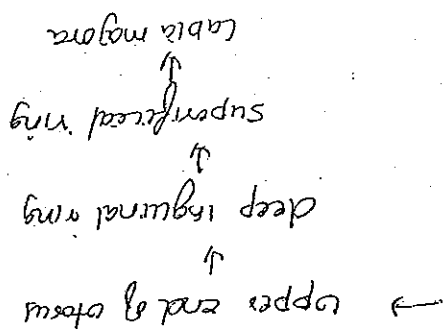 → upper end of uterus
↓
deep inguinal ring
↓
superficial ring
↓
Labia majora